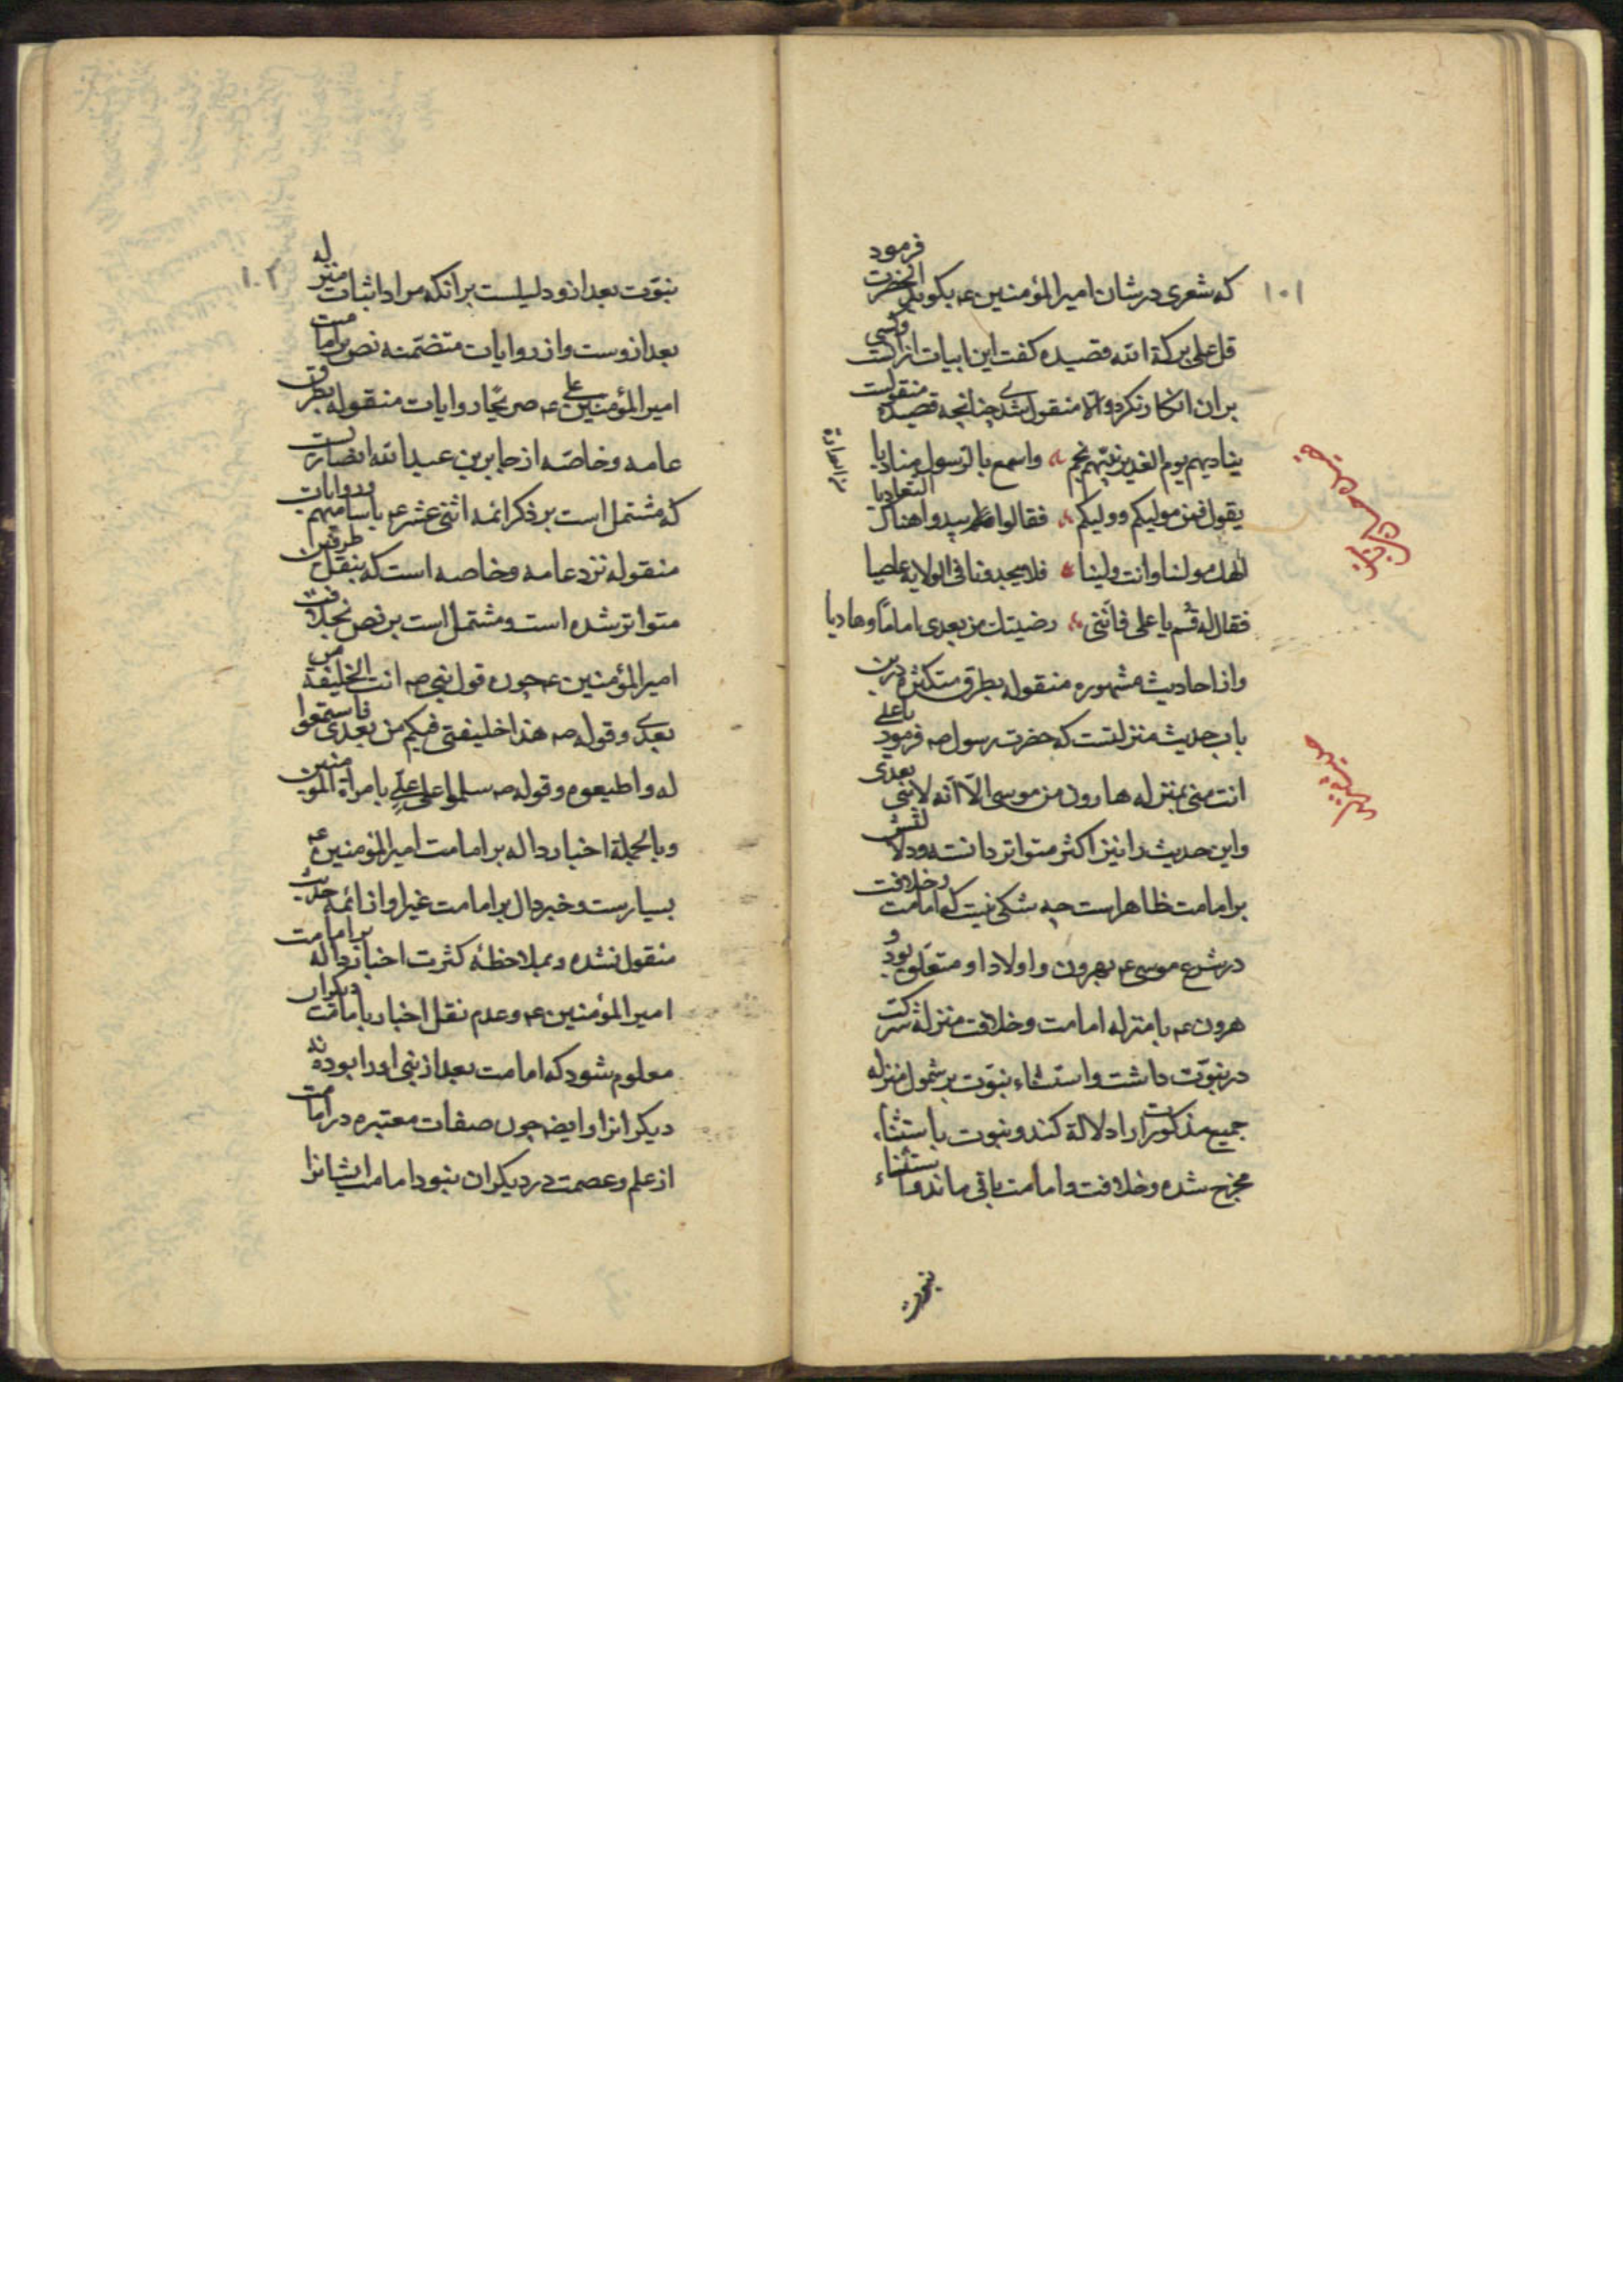 ۱۰۱
که شعری در شان امیرالمؤمنین ع بکوید انحضرت فرمود
قل علی برکة الله قصیده کفت این ابیات ازانست وکسی
بران انکار نکرد والا منقول شدی چنانچه قصیده منقولست
ینادیهم یوم الغدیر نبیهم بخم واسمع بالرسول منادیا
یقول فمن مولیکم وولیکم فقالوا ولم یبدوا هناک التعادیا
الهک مولنا وانت ولینا فلا یجدونا فی الولایة عاصیا
فقال له قم یا علی فاننی رضیتک من بعدی اماما وهادیا
واز احادیث مشهوره منقوله بطرق متکثره درین
باب حدیث منزلتست که حضرت رسول ص فرمود یا علی
انت منی بمنزله هارون من موسی الا انه لا نبی بعدی
واین حدیث را نیز اکثر متواتر دانسته ودلالتش
بر امامت ظاهر است چه شکی نیست که امامت وخلافت
در شرع موسی ع بهرون واولاد او متعلق بود و
هرون ع با منزله امامت وخلافت منزله شرکت
در نبوت داشت واستثناء نبوت بر شمول منزله
جمیع مذکورات را دلالة کند ونبوت باستثناء
مخرج شده وخلافت وامامت باقی ماند واستثناء
نبوت
۱۰۲
نبوت بعد ازو دلیلست برانکه مراد اثبات منزله
بعد ازوست واز روایات متضمنه نص بر امامت
امیرالمؤمنین علی ع صریحا روایات منقوله بطرق
عامه وخاصه از جابر بن عبدالله انصاریست
که مشتمل است بر ذکر ائمه اثنی عشر ع باسامیهم وروایات
منقوله نزد عامه وخاصه است که بنقل طرفین
متواتر شده است ومشتمل است بر نص بخلافت
امیرالمؤمنین ع چون قول نبی ص انت الخلیفة من
بعدی وقوله ص هذا خلیفتی فیکم من بعدی فاستمعوا
له واطیعوه وقوله ص سلموا علی علی بامرة المؤمنین
وبالجملة اخبار داله بر امامت امیرالمؤمنین ع
بسیارست وخبر دال بر امامت غیر او از ائمه حدیث
منقول نشده وبملاحظه کثرت اخبار داله بر امامت
امیرالمؤمنین ع وعدم نقل اخبار بامامت دیکران
معلوم شود که امامت بعد از نبی او را بوده نه
دیکرانرا وایضا چون صفات معتبره در امامت
از علم وعصمت در دیکران نبود امامت ایشانرا